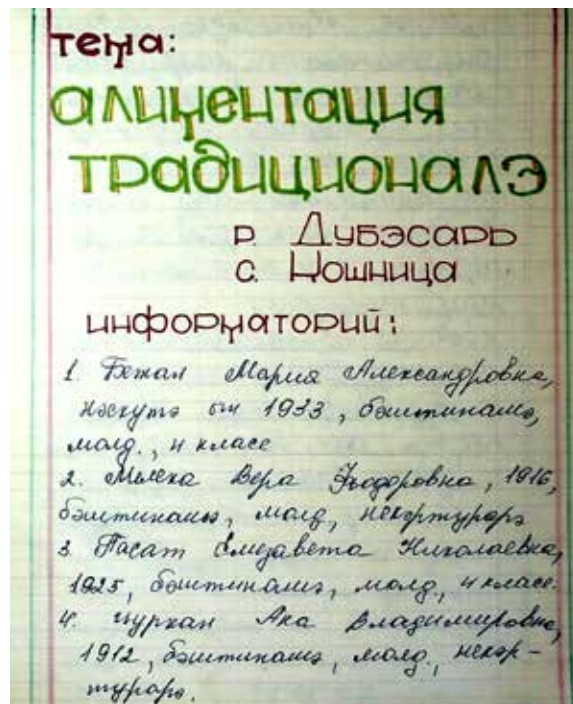 тема:
алиментация
традиционалэ
р. Дубэсарь
с. Мошница
информаторий:
1. Бежан Мария Александровна,
нэскутэ ын 1933, баштинашэ,
молд., 4 класе
2. Мылека Вера Фёодоровна, 1916,
баштинашэ, молд, некэртурарэ
3. Пасат Елизавета Николаевна,
1925, баштинашэ, молд, 4 класе.
4. Цуркан Ана Владимировна,
1912, баштинашэ, молд., некэр-
турарэ.